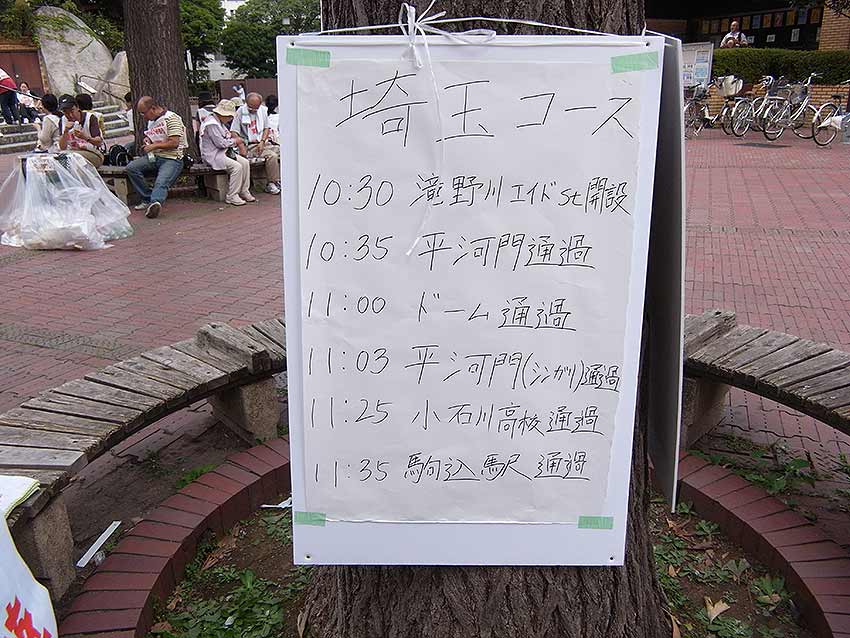 埼玉コーズ
10:30 滝野川エイドSt開設
10:35 平河門通過
11:00 ドーム通過
11:03 平河門(シンガリ)通過
11:25 小石川高校通過
11:35 駒込馬尺通過